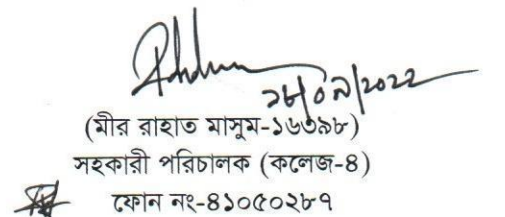 ২৮/০৯/2022
(মীর রাহাত মাসুম-১৬৩৯৮)
সহকারী পরিচালক (কলেজ-৪)
ফোন নং-৪১০৫০২৮৭